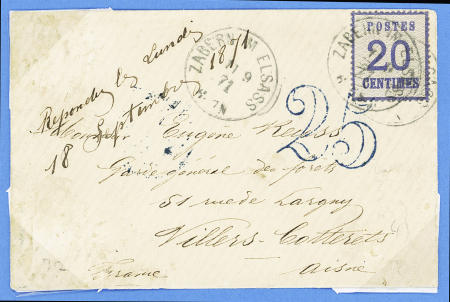 Repondu le Lundi
18/9
Septembre
18
ZABERN IM ELSASS
9
71
POSTES
20
CENTIMES
ZABERN IM
25
Monsieur Eugène Reuss
Garde général des forêts
51 rue de Largny
Villers-Cotterets
Aisne
France